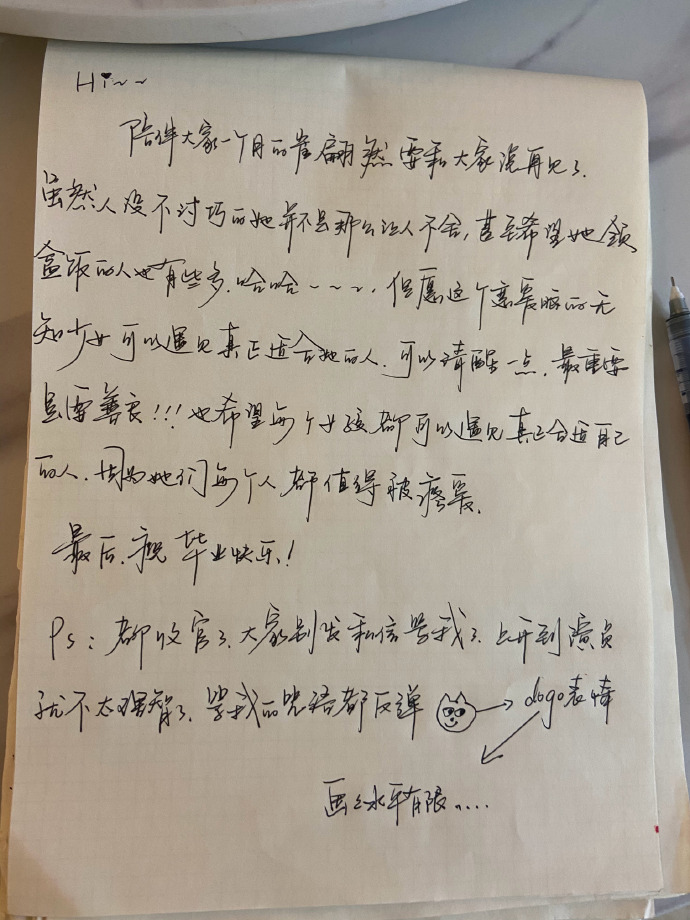 Hi~~
陪伴大家一个月的崔翩然要和大家说再见了.
虽然人设不讨巧的她并不是那么让人不舍,甚至希望她领
盒饭的人也有些多.哈哈~~~.但愿这个恋爱脑的无
知少女可以遇见真正适合她的人.可以清醒一点.最重要
是要善良!!!也希望每个女孩都可以遇见真正合适自己
的人.因为她们每个人都值得被疼爱.
最后.祝毕业快乐!
Ps:都收官了.大家别发私信骂我了.上升到演员
就不太理智了.骂我的咒语都反弹 →dogo表情
画画水平有限.....